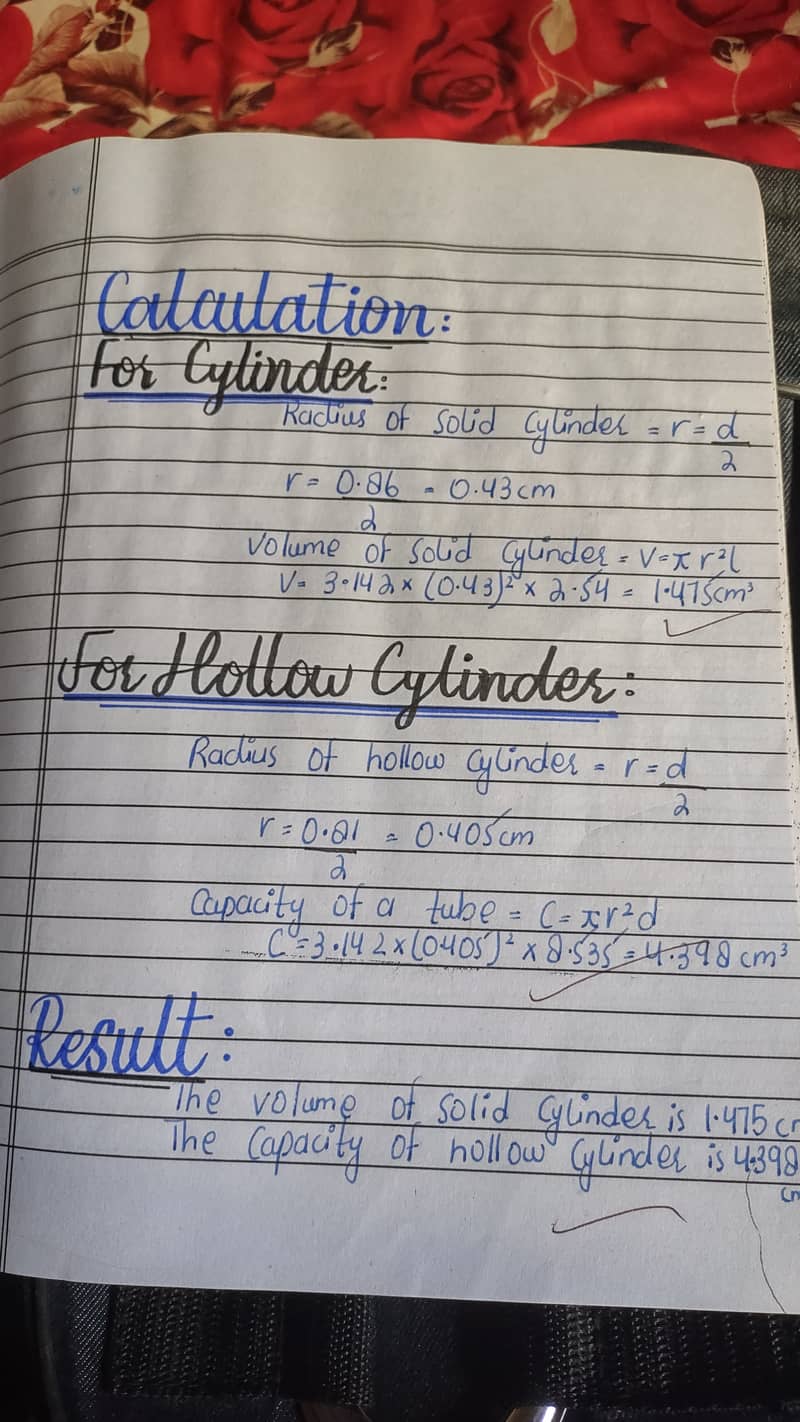 Calculation:
For Cylinder:
Radius of solid cylinder = r = d/2
r = 0.86/2 = 0.43 cm
Volume of solid cylinder = V = π r²l
V = 3.142 × (0.43)² × 2.54 = 1.475 cm³
For Hollow Cylinder:
Radius of hollow cylinder = r = d/2
r = 0.81/2 = 0.405 cm
Capacity of a tube = C = πr²d
C = 3.142 × (0405)² × 8.535 = 4.398 cm³
Result:
The volume of solid cylinder is 1.475 cm
The Capacity of hollow cylinder is 4.398
cm